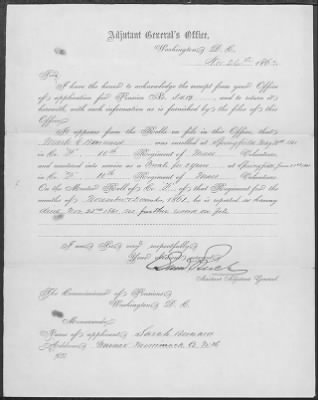 Adjutant General's Office,
Washington, D. C.
Nov 26th, 186
Sir:
I have the honor to acknowledge the receipt from your Office
of application for Pension No. and to return it
herewith, with such information as is furnished by the files of this
Office.
It appears from the Rolls on file in this Office, that
was enrolled at Springfield,
in Co. "F", 10th Regiment of Mass Volunteers,
and mustered into service as a at Springfield, June 21st 1861
in Co. "F", 10th Regiment of Mass Volunteers.
On the Muster Roll of Co. "F", of that Regiment, for the
months of November & December, 1861, he is reported as having
died Nov 1861. No further record on file.
I am, Sir, very respectfully,
Your obedient servant,
Assistant Adjutant General.
The Commissioner of Pensions,
Washington, D. C.
Memoranda:
Name of applicant, Sarah
Address,